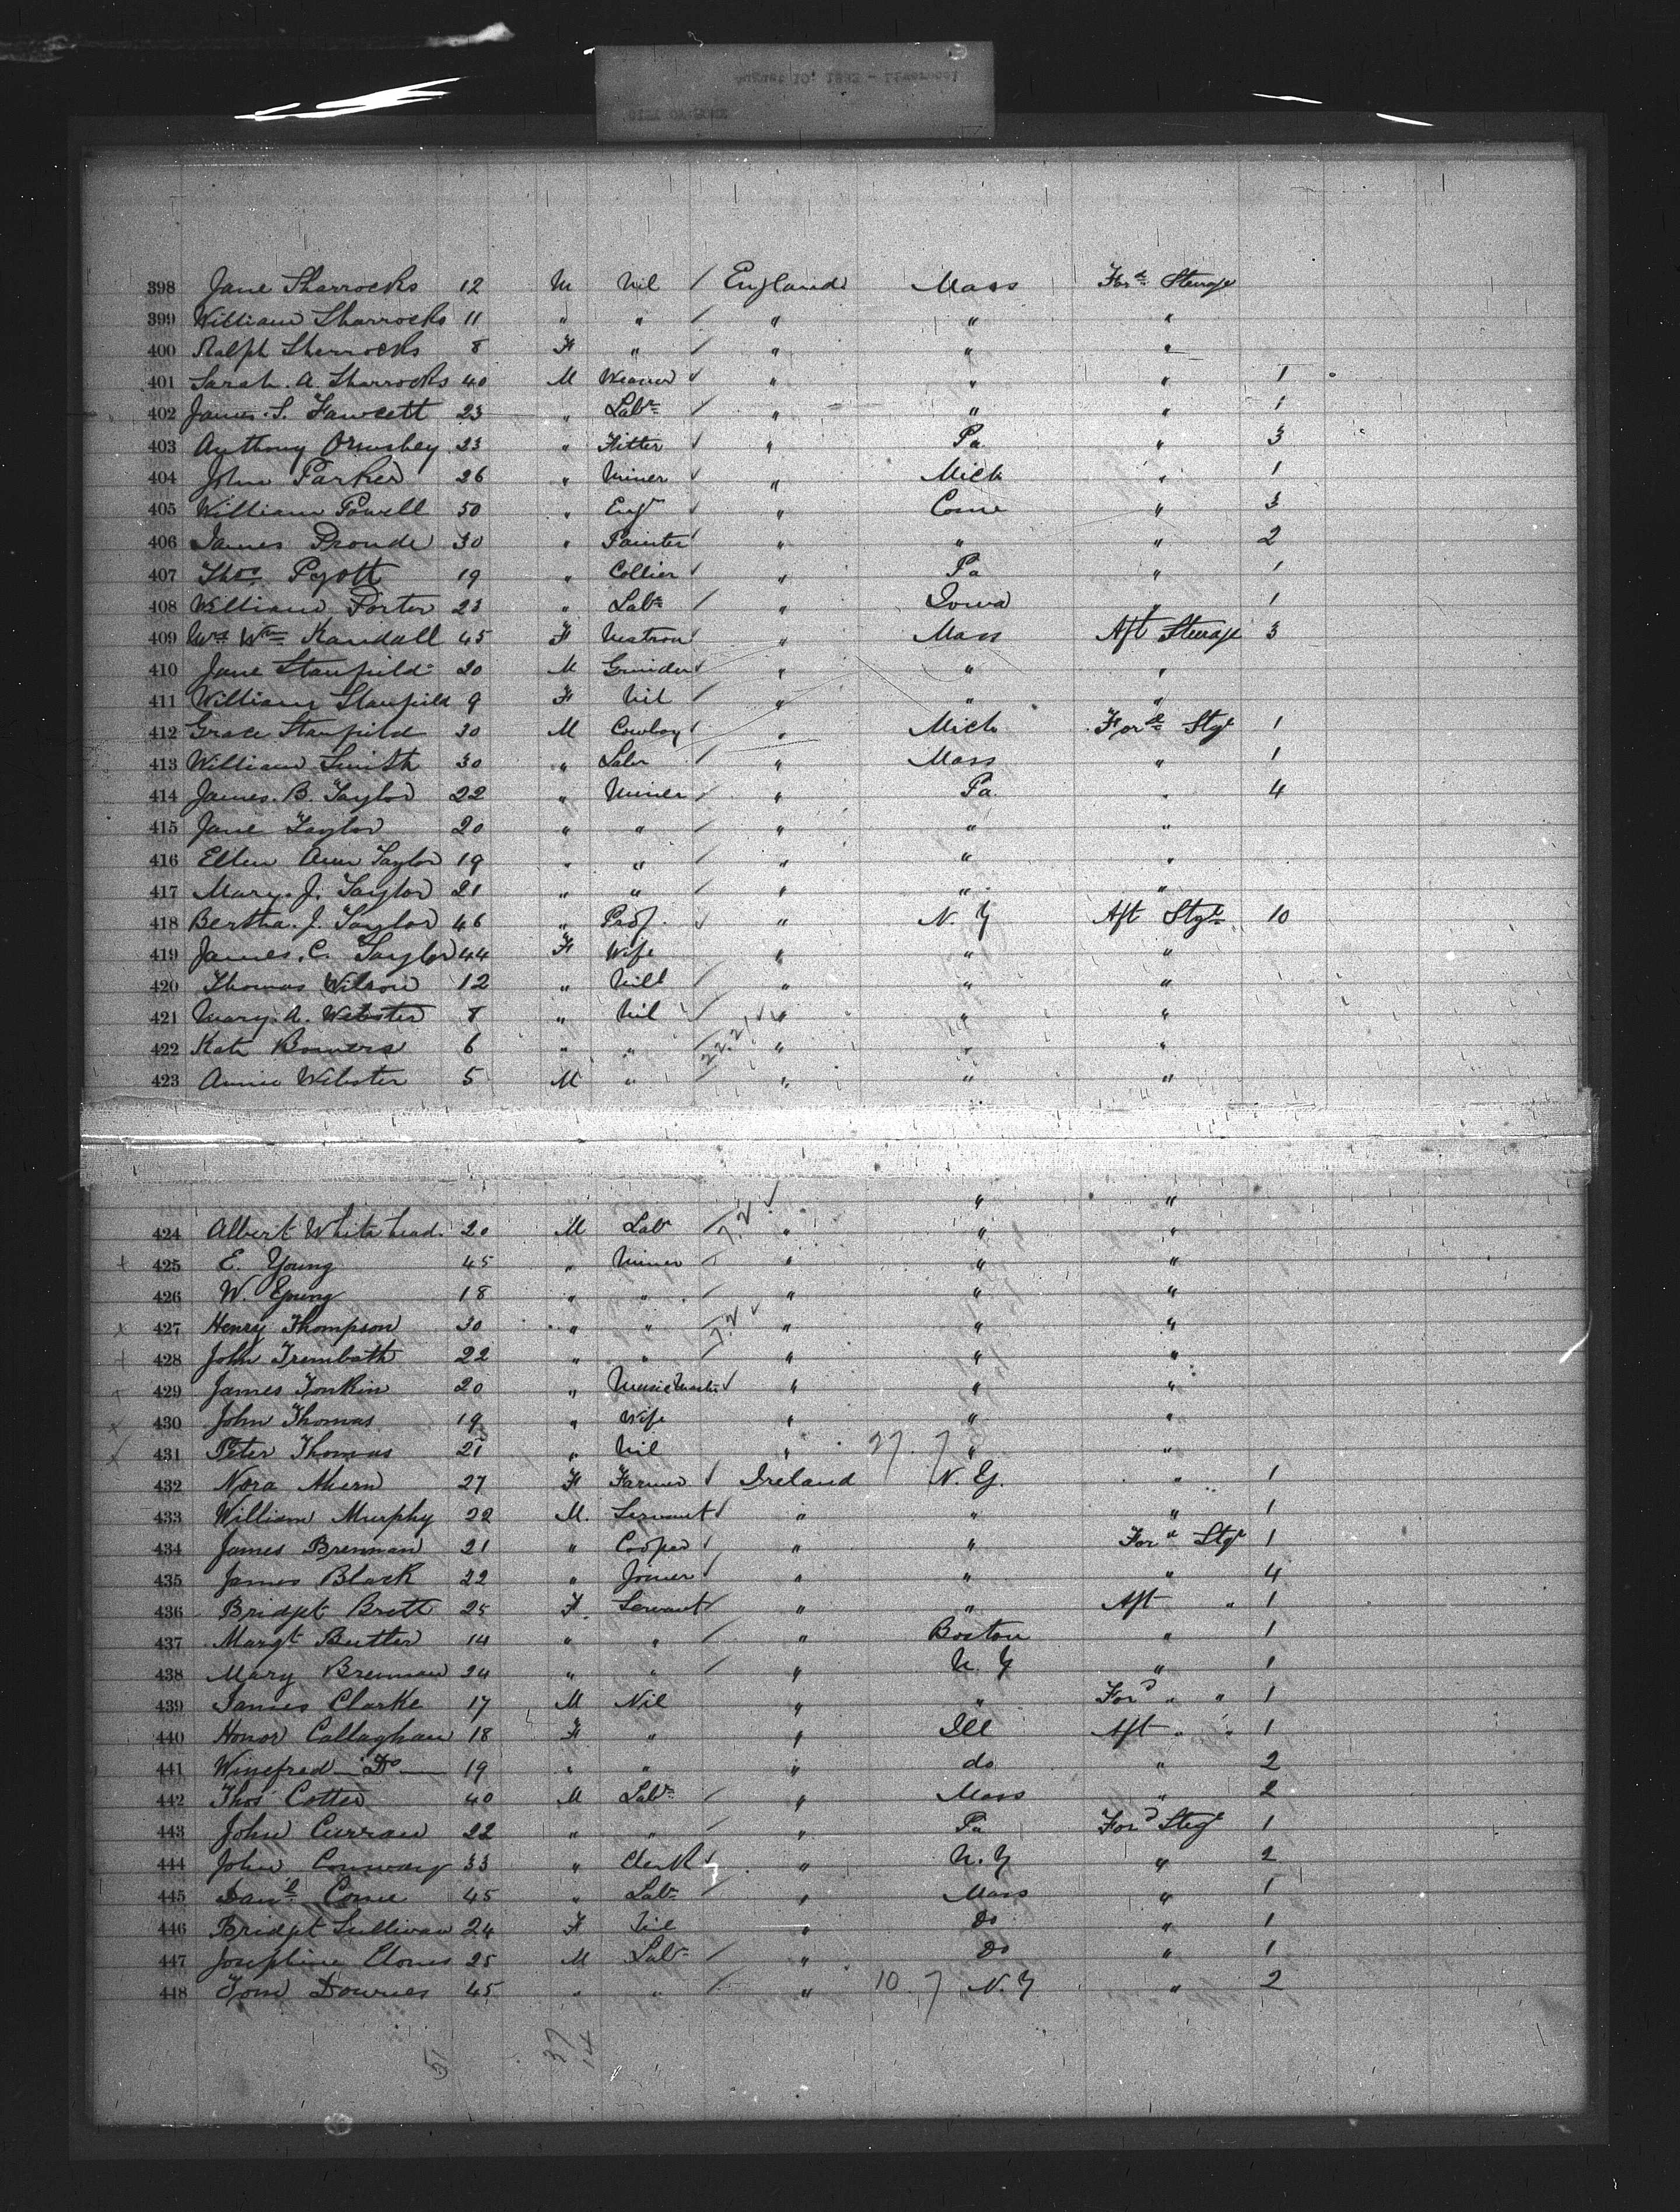 398 Jane Sharrocks 12 M Nil / England Mass For^d Steerage
399 William Sharrocks 11 " " / " " "
400 Ralph Sharrocks 8 F " / " " "
401 Sarah. A. Sharrocks 40 M Weaver ✓ " " " 1
402 James. S. Fawcett 23 " Lab^r / " " " 1
403 Anthony Ormsbey 23 " Fitter ✓ " Pa " 3
404 John Parker 26 " Miner ✓ " Mich " 1
405 William Powell 50 " Eng^r ✓ " Conn " 3
406 James Proude 30 " Painter ✓ " " " 2
407 Tho^s Pyott 19 " Collier ✓ " Pa " 1
408 William Porter 23 " Lab^r / " Iowa " 1
409 Mrs W^m Randall 45 F Matron ✓ " Mass Aft Steerage 3
410 Jane Stanfield 20 M Grinder ✓ " " "
411 William Stanfield 9 F Nil / " " "
412 Grace Stanfield 30 M Cowboy ✓ " Mich For^d Stg^e 1
413 William Smith 30 " Labr / " Mass " 1
414 James. B. Taylor 22 " Miner / " Pa. " 4
415 Jane Taylor 20 " " / " " "
416 Ellen Ann Taylor 19 " " / " " "
417 Mary. J. Taylor 21 " " / " " "
418 Bertha. J. Taylor 46 " Prof. ✓ " N. Y Aft Stg^e 10
419 James. C. Taylor 44 F Wife " " "
420 Thomas Wilson 12 " Nil / " " "
421 Mary. A. Webster 8 " Nil / " " "
422 Kate Bowers 6 " " / 22.21 ✓ " " "
423 Annie Webster 5 M " / " " "
" "
424 Albert Whitehead 20 M Lab^r / " " "
+ 425 E. Young 45 " Miner / " " "
426 W. Young 18 " " / " " "
x 427 Henry Thompson 30 " " / " " "
+ 428 John Trembath 22 " " / " " "
+ 429 James Tonkin 20 " Music Master ✓ " " "
x 430 John Thomas 19 " Wife " " "
x 431 Peter Thomas 21 " Nil " 27. 7 " "
432 Nora Ahern 27 F Farmer ✓ Ireland N. Y. " 1
433 William Murphy 22 M. Servant ✓ " " " 1
434 James Brennan 21 " Cooper ✓ " " For^d Stg^e 1
435 James Black 22 " Joiner ✓ " " " 4
436 Bridget Brett 25 F. Servant ✓ " " Aft " 1
437 Marg^t Butler 14 " " / " Boston " 1
438 Mary Brennan 24 " " / " N. Y " 1
439 James Clarke 17 M Nil " " For^d " " 1
440 Honor Callaghan 18 F " " Ill Aft " " 1
441 Winefred D^o 19 " " " do " 2
442 Thos Cotter 40 M Lab^r / " Mass " 2
443 John Curran 22 " " / " Pa For^d Steg^e 1
444 John Conway 33 " Clerk ✓ " N. Y " 2
445 Dan^l Cone 45 " Lab^r / " Mass " 1
446 Bridget Sullivan 24 F Nil " Do " 1
447 Josephine Clones 25 M Lab^r / " Do " 1
448 Tom Downes 45 " " / " 10. 7 N. Y " 2
51 37
14